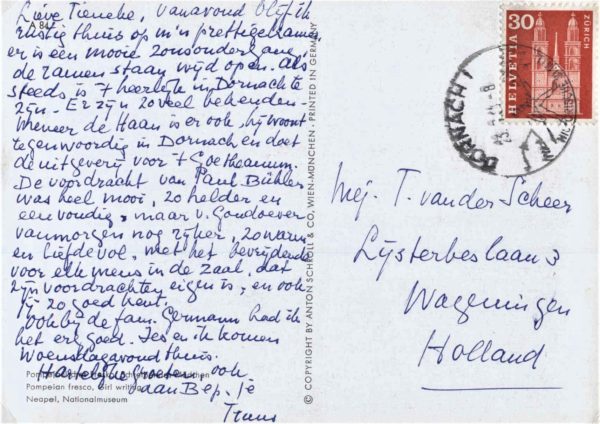 Lieve Tieneke, vanavond blijf ik
rustig thuis op m'n prettige kamer,
er is een mooie zonsondergang,
de ramen staan wijd open. Als
steeds is 't heerlijk in Dornach te
zijn. Er zijn zoveel bekenden.
Meneer de Haan is er ook, hij woont
tegenwoordig in Dornach en doet
de uitgeverij voor 't Goetheanum.
De voordracht van Paul Bühler
was heel mooi, zo helder en
eenvoudig, maar v. Goudoever
vanmorgen nog rijker, zo warm
en liefdevol, met het bevrijdende
voor elke mens in de zaal, dat
zijn voordrachten eigen is, en ook
jij zo goed kent.
Ook bij de fam. Germann had ik
het erg goed. Ies en ik komen
Woensdagavond thuis.
Hartelijke groeten, ook
aan Bep. je
Truus
A 84
Pompeian fresco, Girl writing
Neapel, Nationalmuseum
© COPYRIGHT BY ANTON SCHROLL & CO, WIEN-MÜNCHEN - PRINTED IN GERMANY
30
HELVETIA
ZÜRICH
DORNACH 1
Mej. T. van der Scheer
Lijsterbeslaan 3
Wageningen
Holland